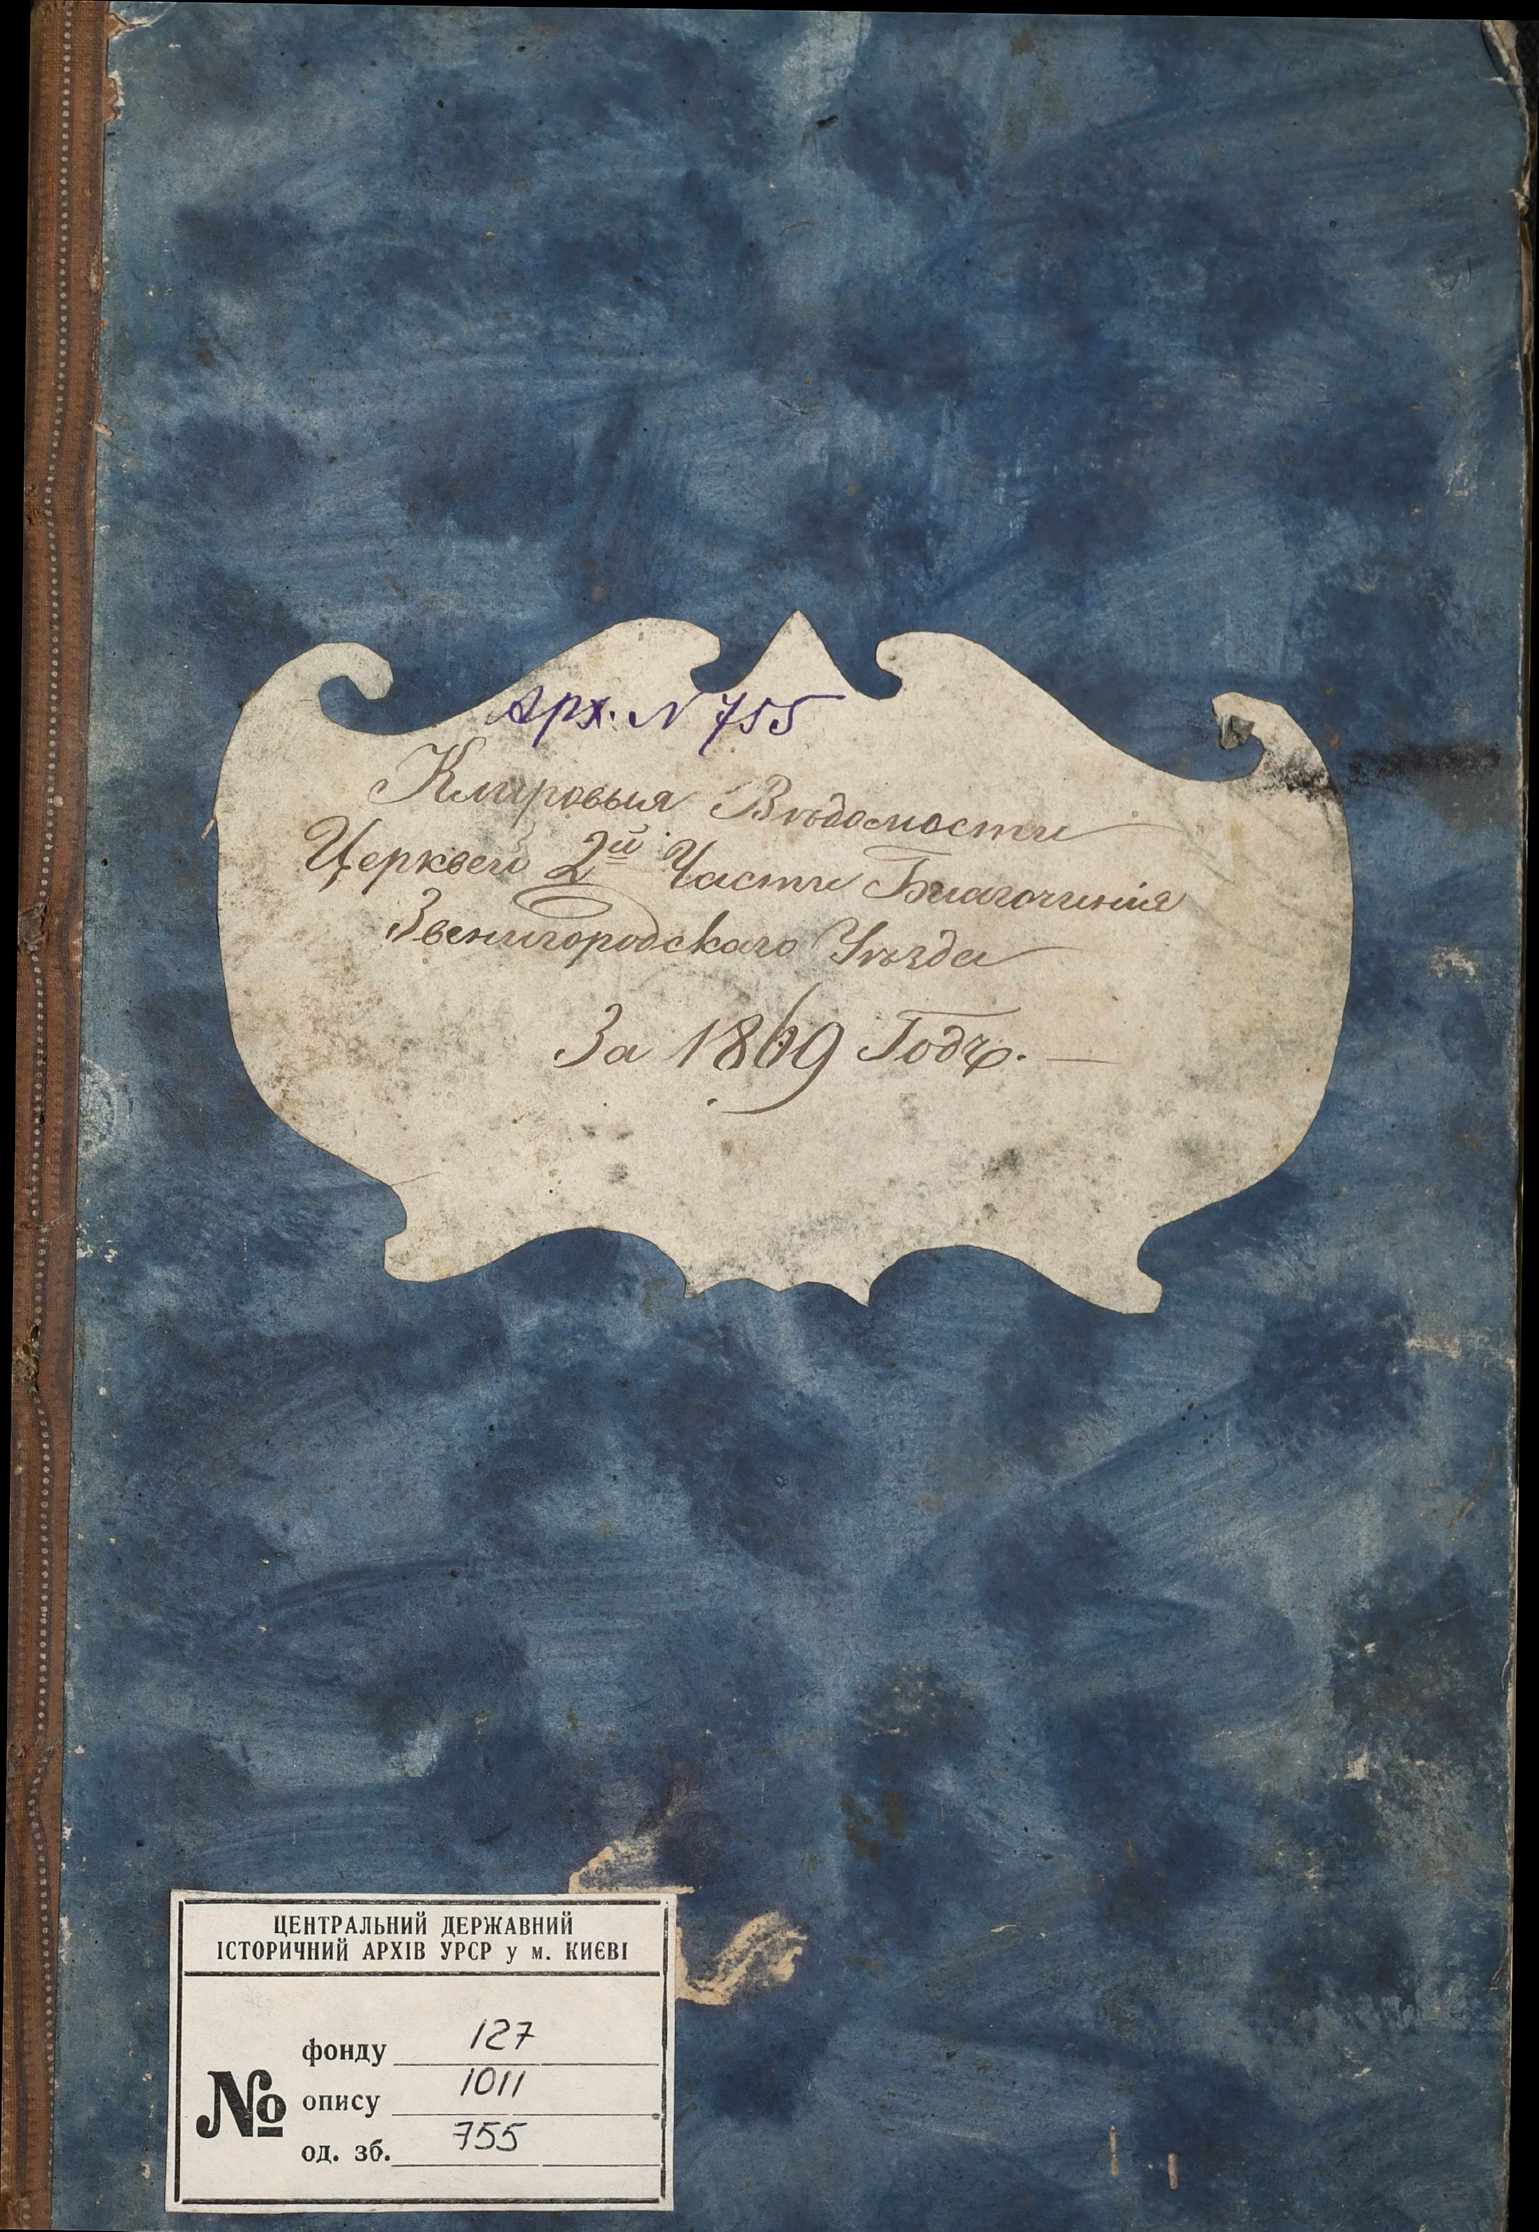 Арх. N 755
Клировыя Вѣдомости
Церквей 2й Части Благочинія
Звенигородскаго Уѣзда
За 1869 Годъ. —
ЦЕНТРАЛЬНИЙ ДЕРЖАВНИЙ
ІСТОРИЧНИЙ АРХІВ УРСР у м. КИЄВІ
№
фонду 127
опису 1011
од. зб. 755